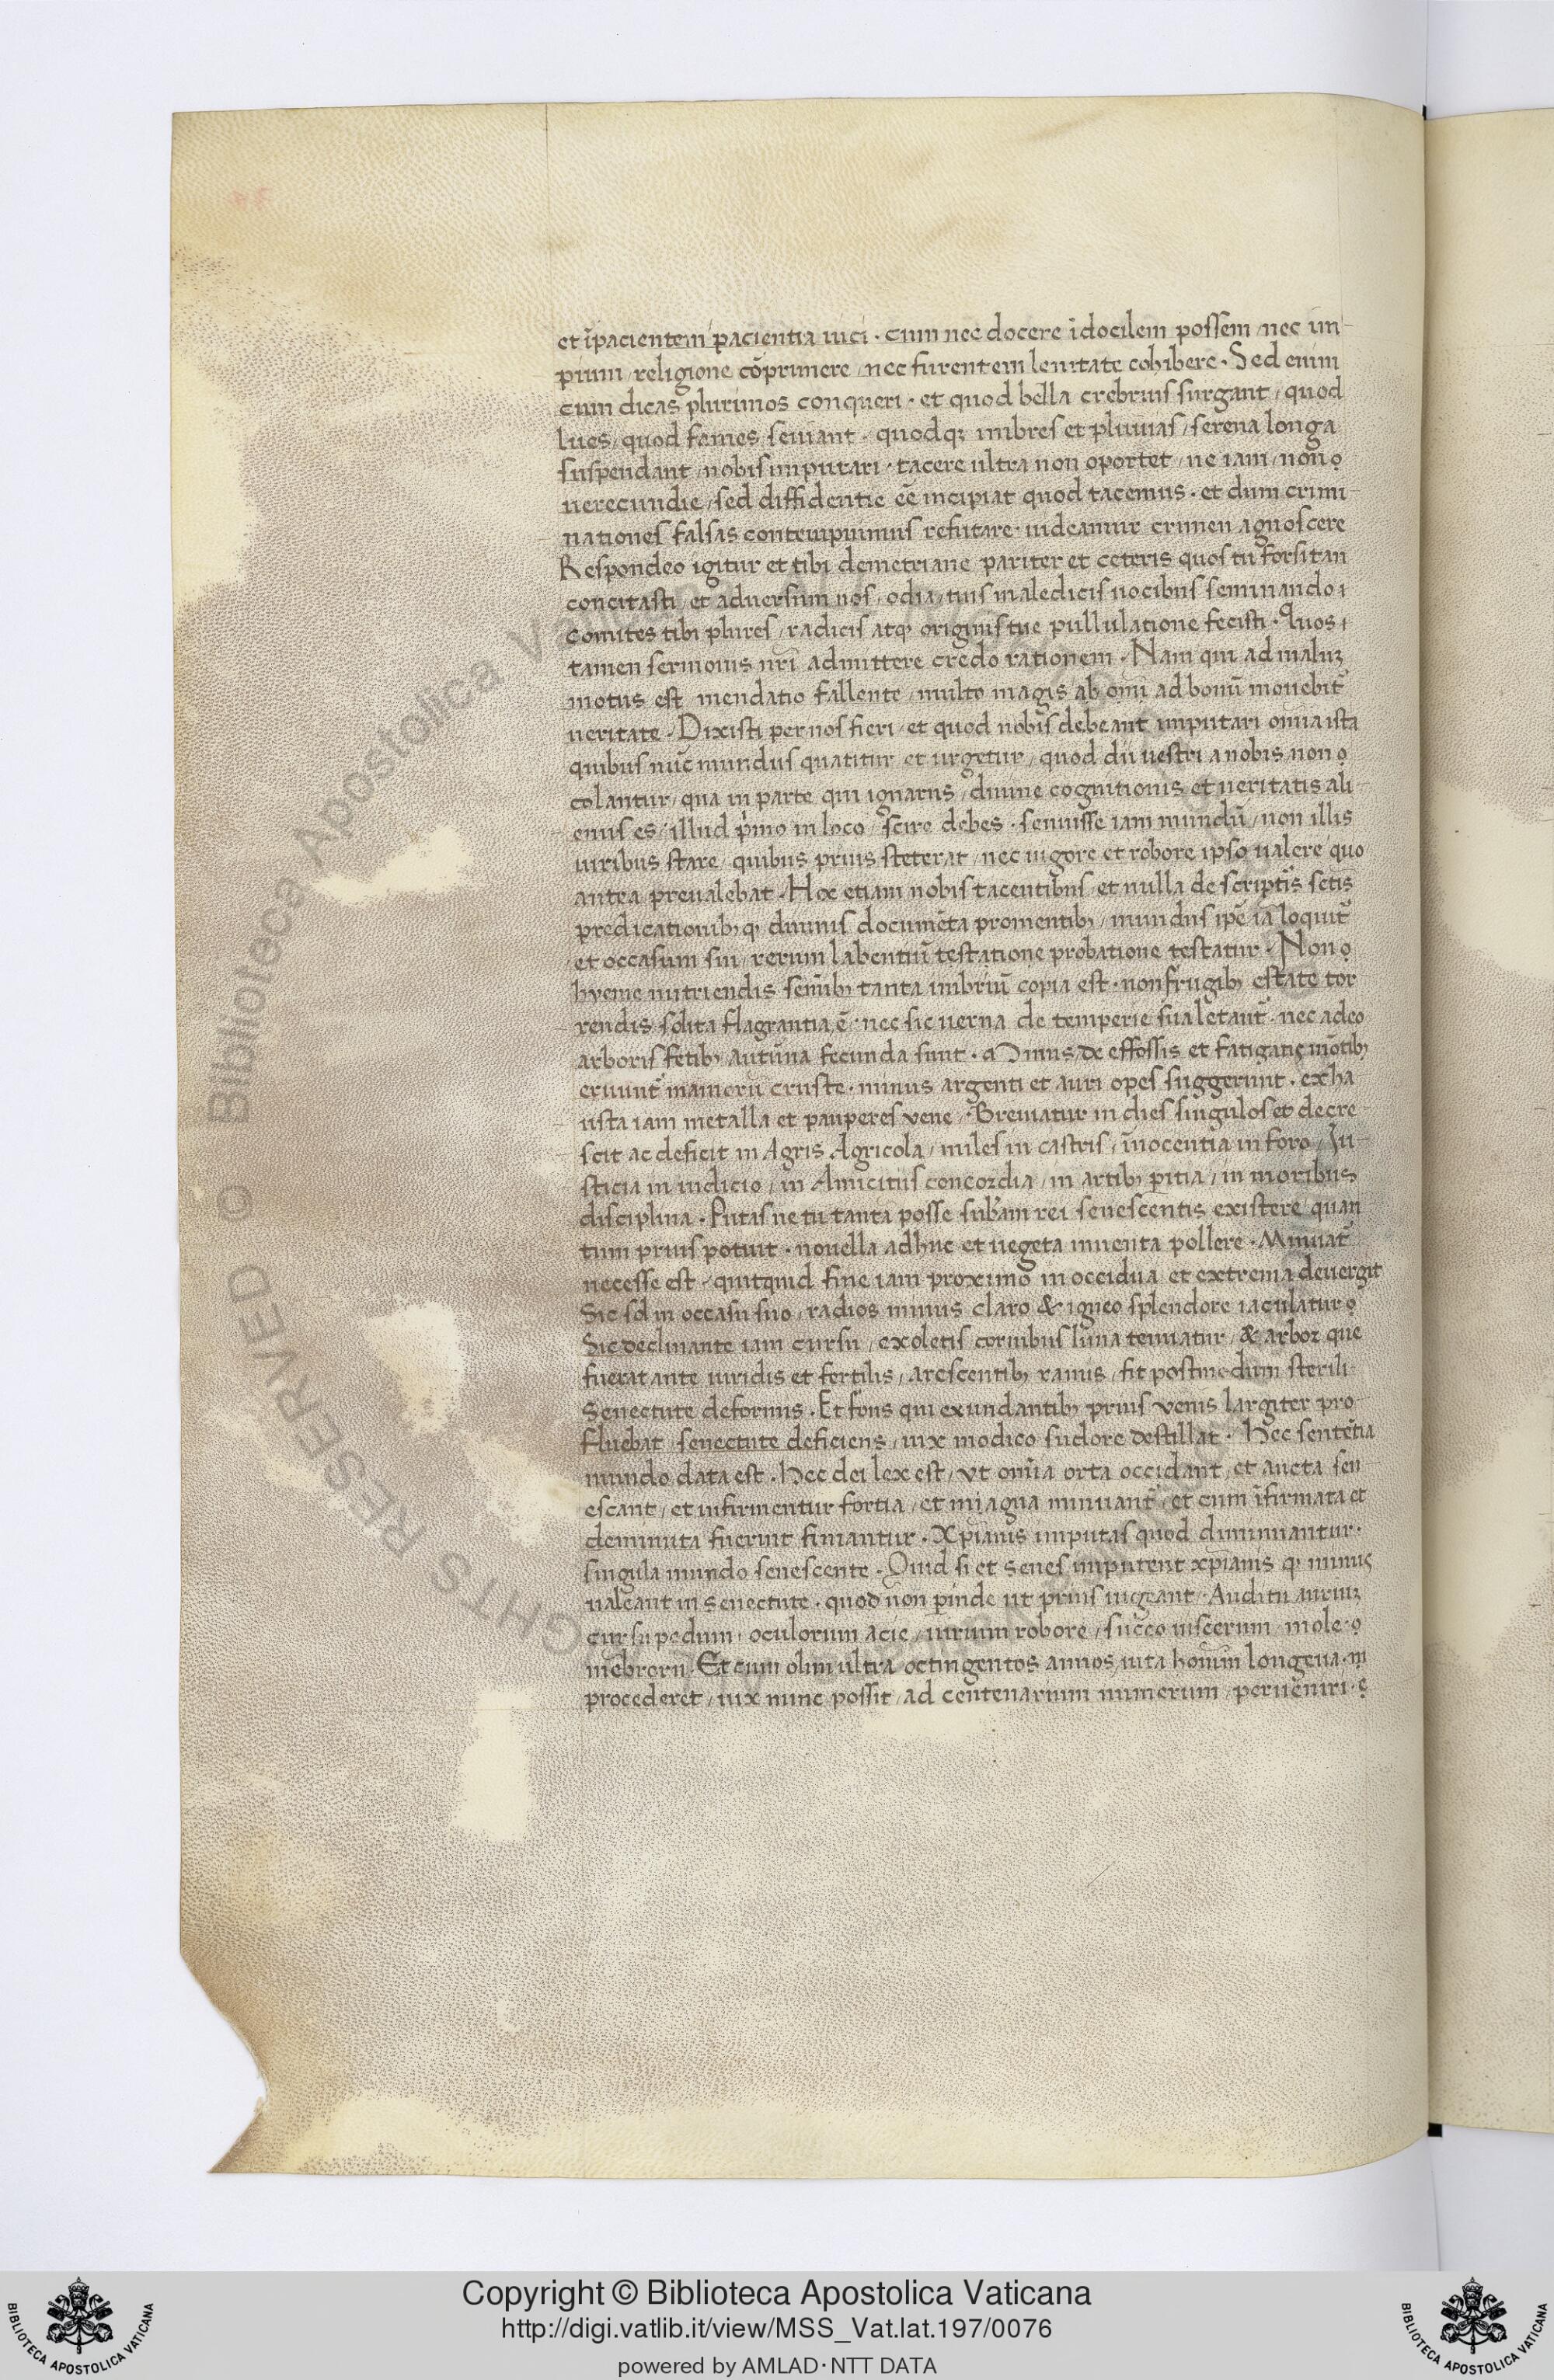 et īpacientem pacientia uici · cum nec docere īdocilem possem / nec im
pium / religione cōprimere / nec furentem lenitate cohibere · Sed enim
cum dicas plurimos conqueri · et quod bella crebrius surgant / quod
lues / quod fames seuiant · quodqȝ imbres et pluuias / serena longa
suspendant / nobis imputari · tacere ultra non oportet / ne iam / non
uerecundie / sed diffidentie eē incipiat quod tacemus · et dum crimi
nationes falsas contempnimus refutare · uideamur crimen agnoscere
Respondeo igitur et tibi demetriane pariter et ceteris quos tu forsitan
concitasti / et aduersum nos / odia / tuis maledicis uocibus seminando
comites tibi plures / radicis atqȝ originis tue pullulatione fecisti · Quos
tamen sermonis nr̄i admittere credo rationem · Nam qui ad maluȝ
motus est mendatio fallente / multo magis ab om̄i ad bonū mouebit᷑
ueritate · Dixisti per nos fieri / et quod nobis debeant imputari omnia ista
quibus nūc mundus quatitur et urgetur / quod dii uestri a nobis non
colantur / qua in parte qui ignarus / diuine cognitionis et ueritatis ali
enus es / illud p̄mo in loco / scire debes · senuisse iam mundū / non illis
uiribus stare / quibus prius steterat / nec uigore et robore ipso ualere quo
antea preualebat · Hoc etiam nobis tacentibus / et nulla de scriptis sc̄tis
predicationibȝ qȝ diuinis documēta promentibȝ / mundus ip̄e iā loquit᷑
et occasum sui / rerum labentiū testatione probatione testatur · Non
hyeme nutriendis semībȝ tanta imbriū copia est · non frugibȝ estate tor
rendis solita flagrantia ē · nec sic uerna de temperie sua letant᷑ · nec adeo
arboris fetibȝ autūna fecunda sunt · Minus de effossis et fatigatis mōtibȝ
eruunt᷑ mamorū cruste · minus argenti et auri opes suggerunt · exha
usta iam metalla et pauperes vene / Breuiatur in dies singulos et decre
scit ac deficit in Agris Agricola / miles in castris / īnocentia in foro / Iu
sticia in iudicio / in Amicitiis concordia / in artibȝ pitia / in moribus
disciplina · Putas ne tu tanta posse sub᷑am rei senescentis existere quan
tum prius potuit · nouella adhuc et uegeta iuuenta pollere · Minuat᷑
necesse est · quitquid fine iam proximo in occidua et extrema deuergit
Sic sol in occasu suo / radios minus claro & igneo splendore iaculatur
Sic declinante iam cursu / exoletis cornibus luna tenuatur / & arbor que
fuerat ante uiridis et fertilis / arescentibȝ ramis / fit postmodum sterili
Senectute deformis · Et fons qui exundantibȝ prius venis largiter pro
fluebat / senectute deficiens / uix modico sudore destillat · Hec sentētia
mundo data est · Hec dei lex est / vt om̄ia orta occidant / et aucta sen
escant / et infirmentur fortia / et magna minuant᷑ / et cum īfirmata et
deminuta fuerint finiantur · Xp̄ianis imputas quod diminuantur ·
singula mundo senescente · Quid si et senes imputent xp̄ianis qȝ minus
ualeant in senectute · quod non pinde ut prius uigeant · Auditu auriuȝ
cursu pedum / oculorum acie / uirium robore / succo uiscerum / mole
mēbrorū · Et cum olim ultra octingentos annos / uita homīn longeua
procederet / uix nunc possit / ad centenarium numerum / perueniri ·
Copyright © Biblioteca Apostolica Vaticana
http://digi.vatlib.it/view/MSS_Vat.lat.197/0076
powered by AMLAD·NTT DATA